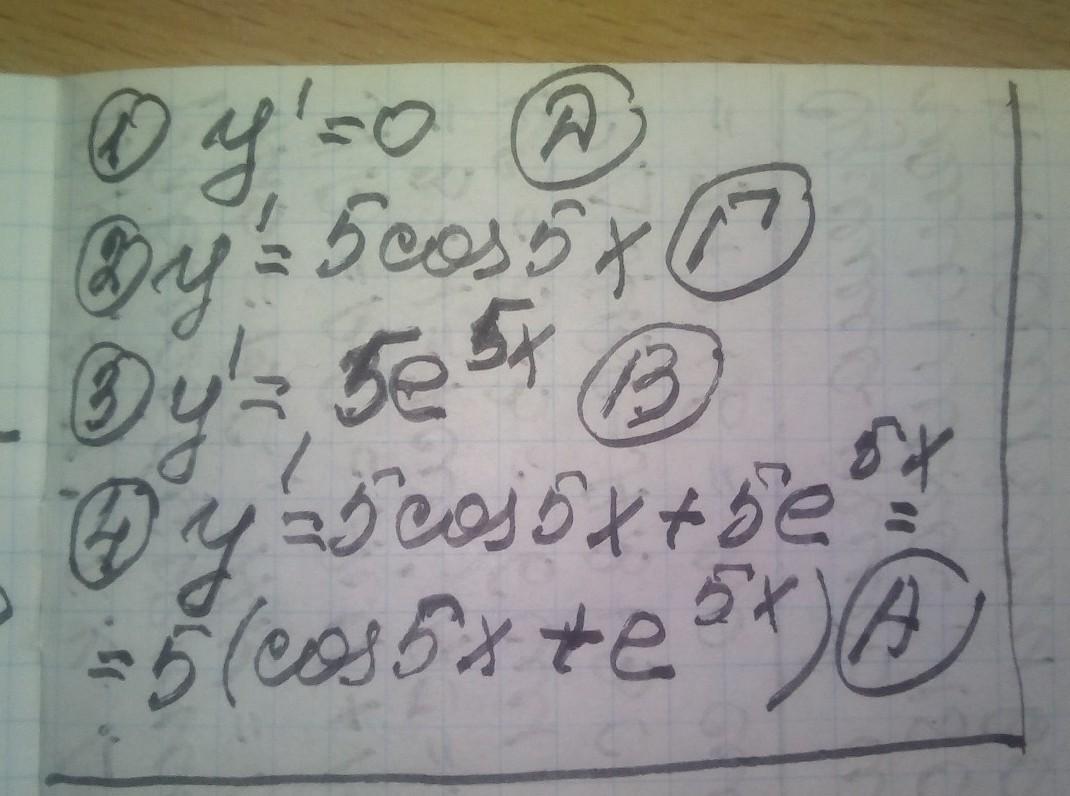 ① y' = 0 Д
② y' = 5cos5x Г
③ y' = 5e^5x В
④ y' = 5cos5x + 5e^5x =
= 5(cos5x + e^5x) А